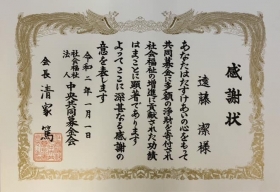 感謝状
遠藤 潔様
あなたはたすけあいの心をもって
共同募金に多額の浄財を寄付され
社会福祉の増進に貢献された功績
はまことに顕著であります
よってここに深甚なる感謝の
意を表します
令和二年一月一日
社会福祉法人 中央共同募金会
会長 清家 篤